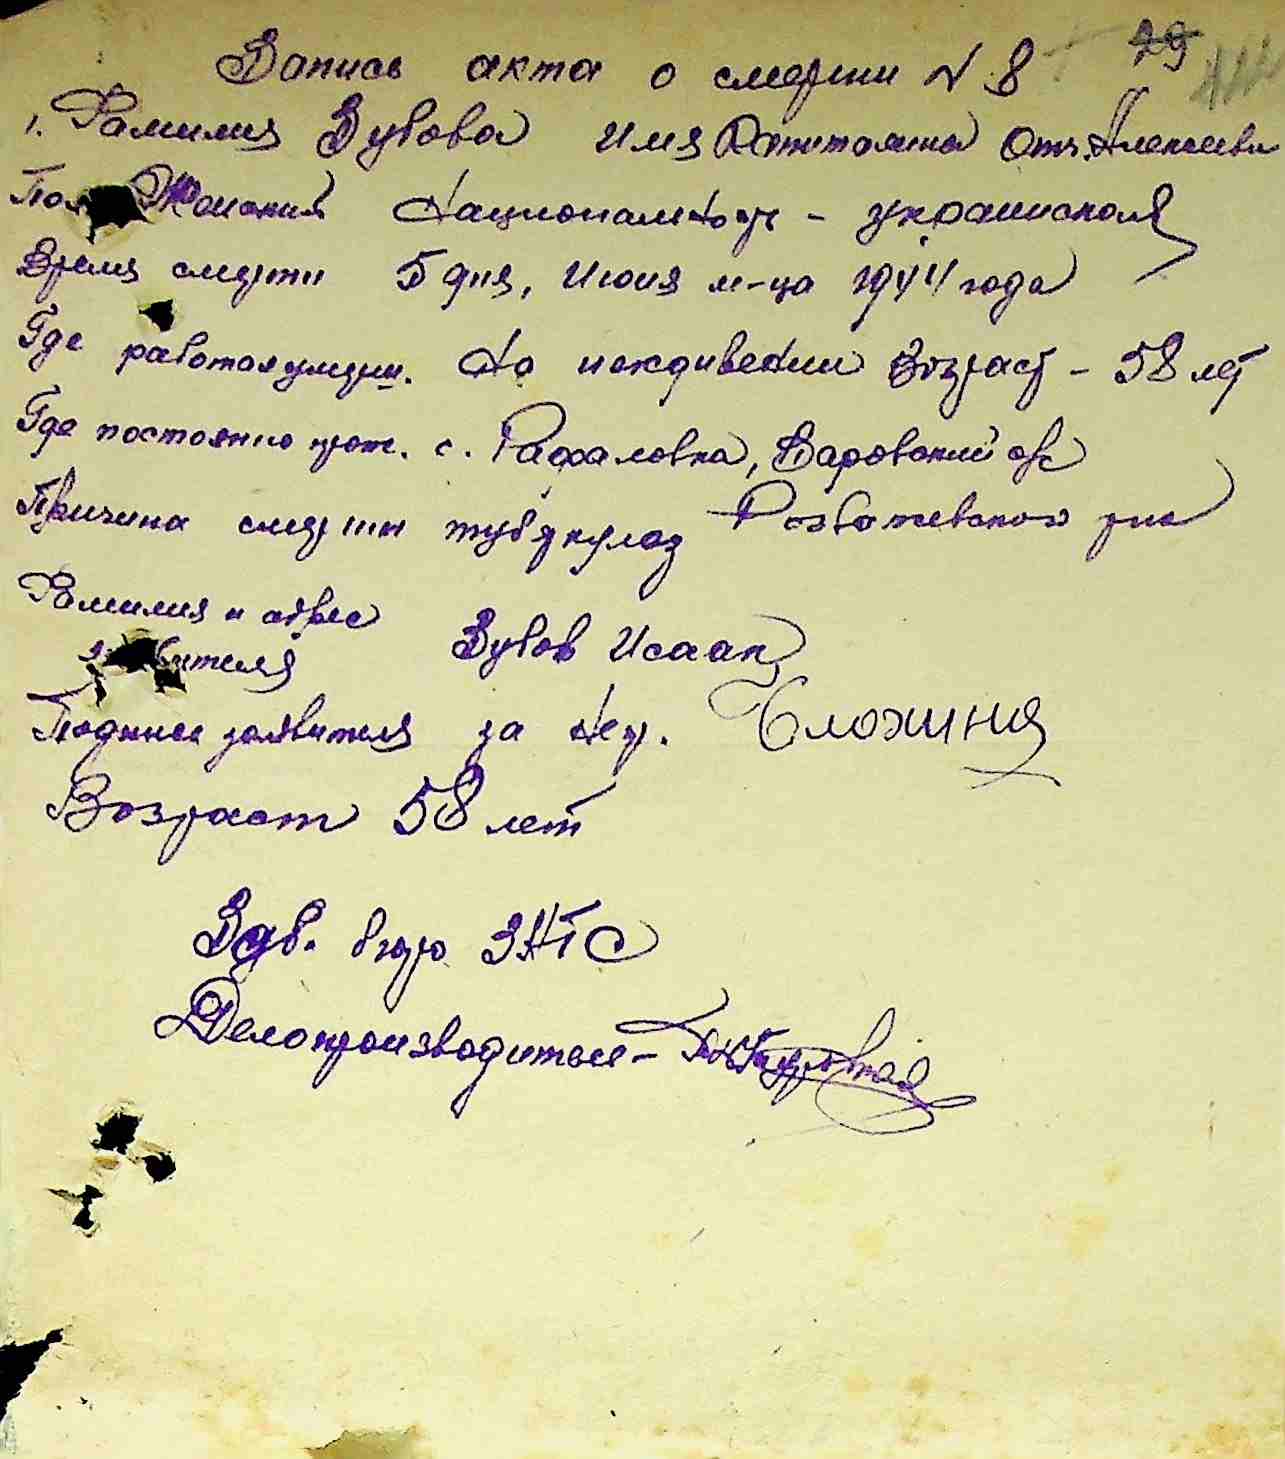 29
Запись акта о смерти N 8
1. Фамилия Зубова Имя Отч. Алексеевн
Пол Женский Национальность - украинская
Время смерти 5 дня, Июня м-ца 1944 года
Где работал умерш. На иждивении Возраст - 58 лет
Где постоянно прож. с. Рафаловка, Варовский с/с
Причина смерти туберкулез Розважевского р-на
Фамилия и адрес
заявителя Зубов Исаак
Подпись заявителя за негр.
Возраст 58 лет
Зав. бюро ЗАГС
Делопроизводитель -